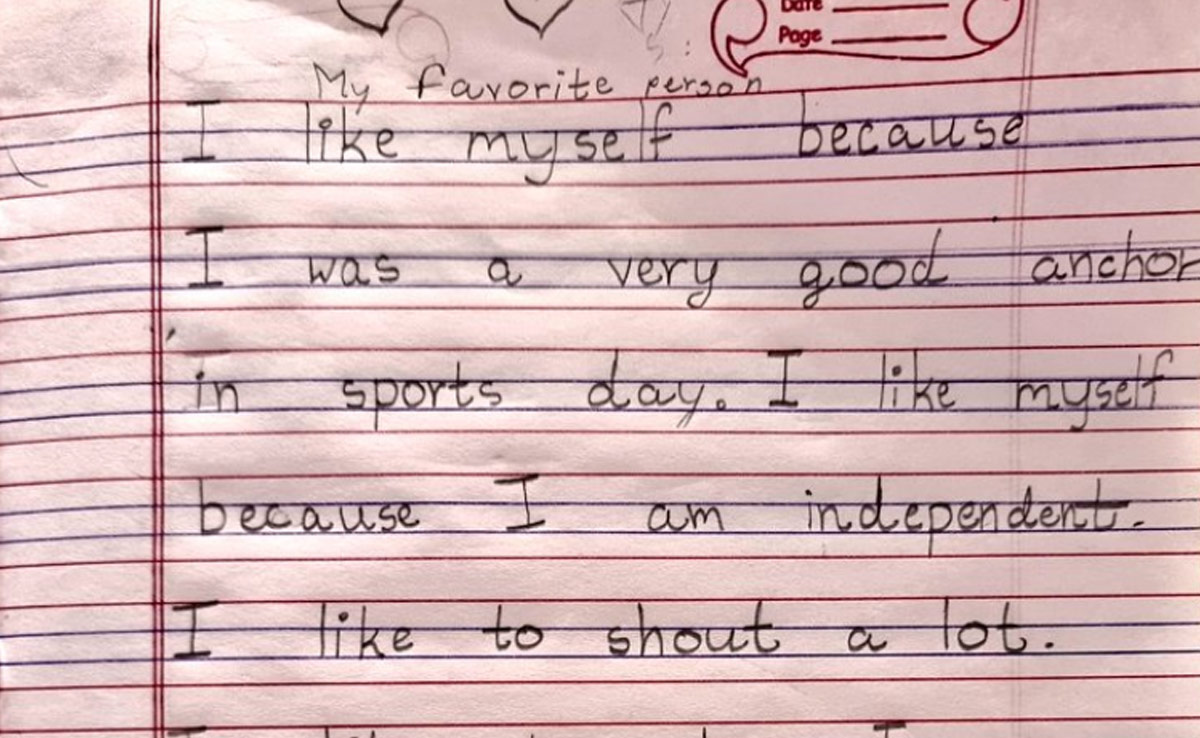 Date
Page
My favorite person
I like myself because
I was a very good anchor
in sports day. I like myself
because I am independent.
I like to shout a lot.